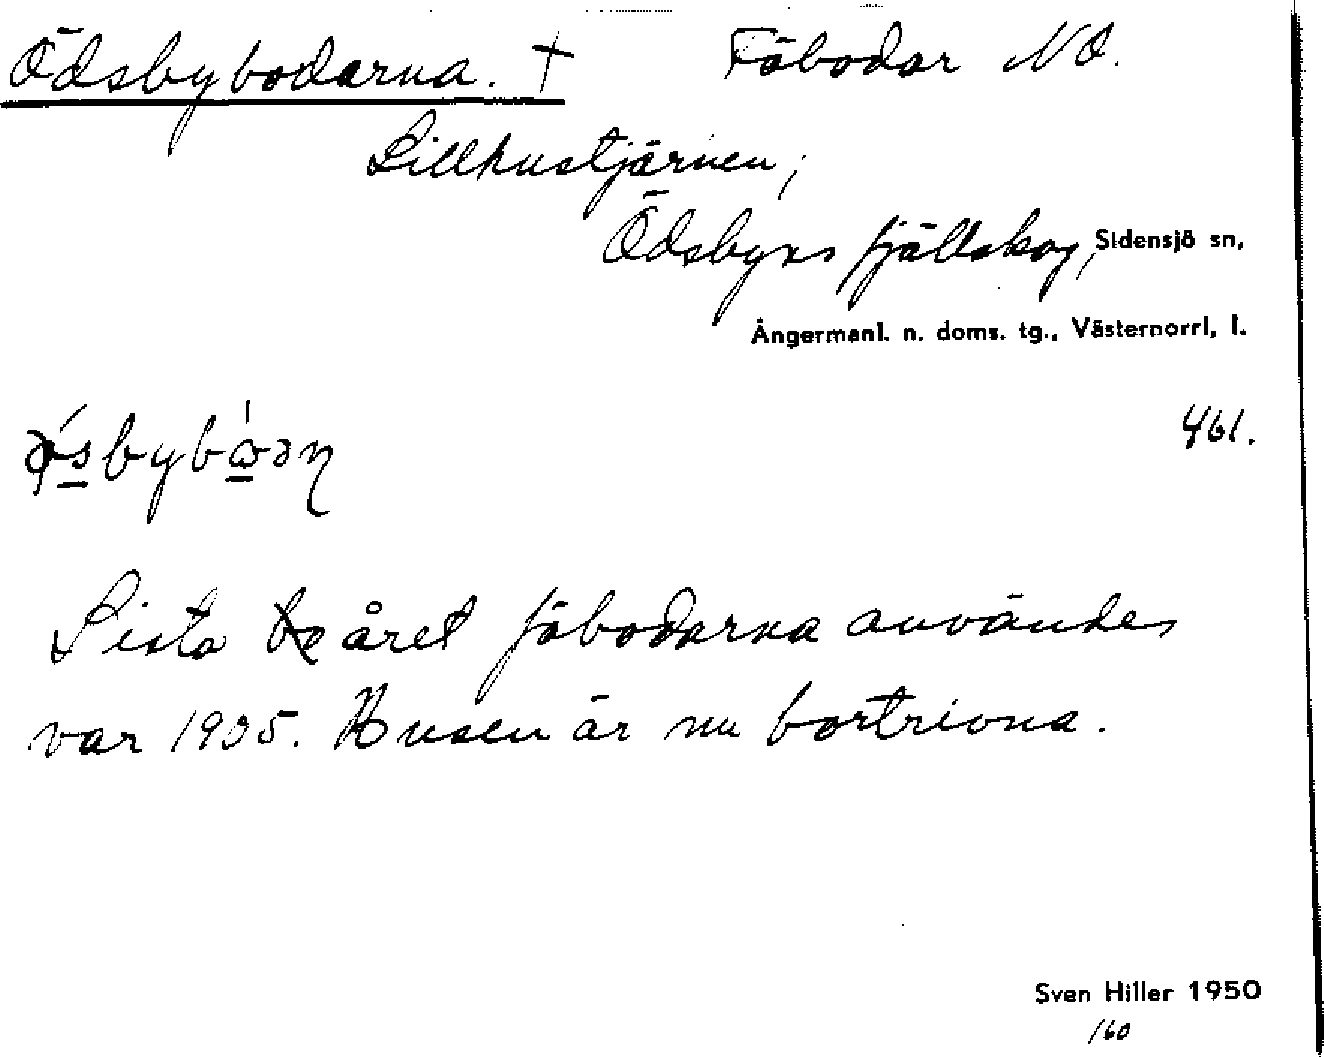 Ödsbybodarna. † Fäbodar NO.
Lillhustjärnen,
Ödsbyns fjällskog, Sidensjö sn,
Ångermanl. n. doms. tg., Västernorrl, l.
461.
Sista året fäbodarna användes
var 1935. Husen är nu bortrivna.
Sven Hiller 1950
160